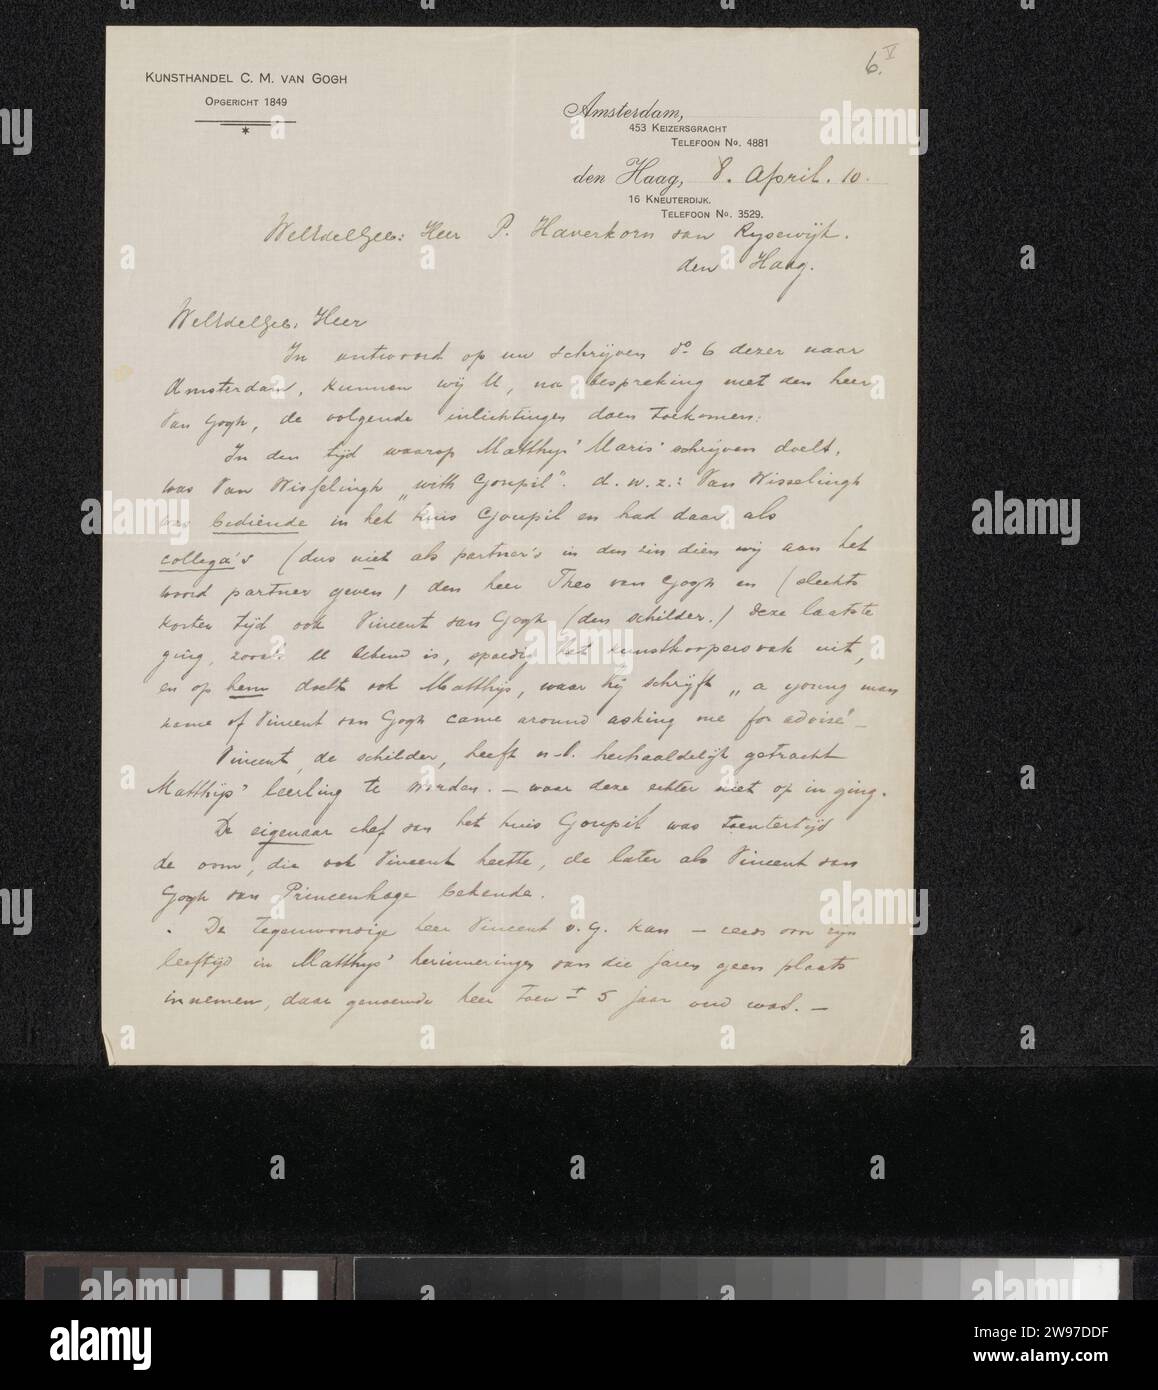 6. V
KUNSTHANDEL C. M. VAN GOGH
OPGERICHT 1849
Amsterdam,
453 KEIZERSGRACHT
TELEFOON No. 4881
den Haag, 8. April. 10.
16 KNEUTERDIJK.
TELEFOON No. 3529.
WelEdelGeb: Heer P. Haverkorn van Rysewijk.
den Haag.
WelEdelGeb: Heer
In antwoord op uw schrijven do 6 dezer naar
Amsterdam, kunnen wij U, na bespreking met den heer
Van Gogh, de volgende inlichtingen doen toekomen:
In den tijd waarop Matthijs' Maris' schrijven doelt,
was Van Wisselingh „with Goupil". d.w.z.: Van Wisselingh
was bediende in het huis Goupil en had daar als
collega's (dus niet als partner's in den zin dien wij aan het
woord partner geven) den heer Theo van Gogh en (slechts
korten tijd ook Vincent van Gogh (den schilder.) Deze laatste
ging, zooals U bekend is, spoedig het kunstkoopersvak uit,
en op hem doelt ook Matthijs, waar hij schrijft „a young man
name of Vincent van Gogh came around asking me for advise" –
Vincent, de schilder, heeft n-l. herhaaldelijk getracht
Matthijs' leerling te worden. – waar deze echter niet op in ging.
De eigenaar chef van het huis Goupil was toentertijd
de oom, die ook Vincent heette, de later als Vincent van
Gogh van Princenhage bekende.
De tegenwoordige heer Vincent v. G. kan – reeds om zijn
leeftijd in Matthijs' herinneringen van die jaren geen plaats
innemen, daar genoemde heer toen ± 5 jaar oud was. –
alamy
alamy
Image ID: 2W97DDF
www.alamy.com